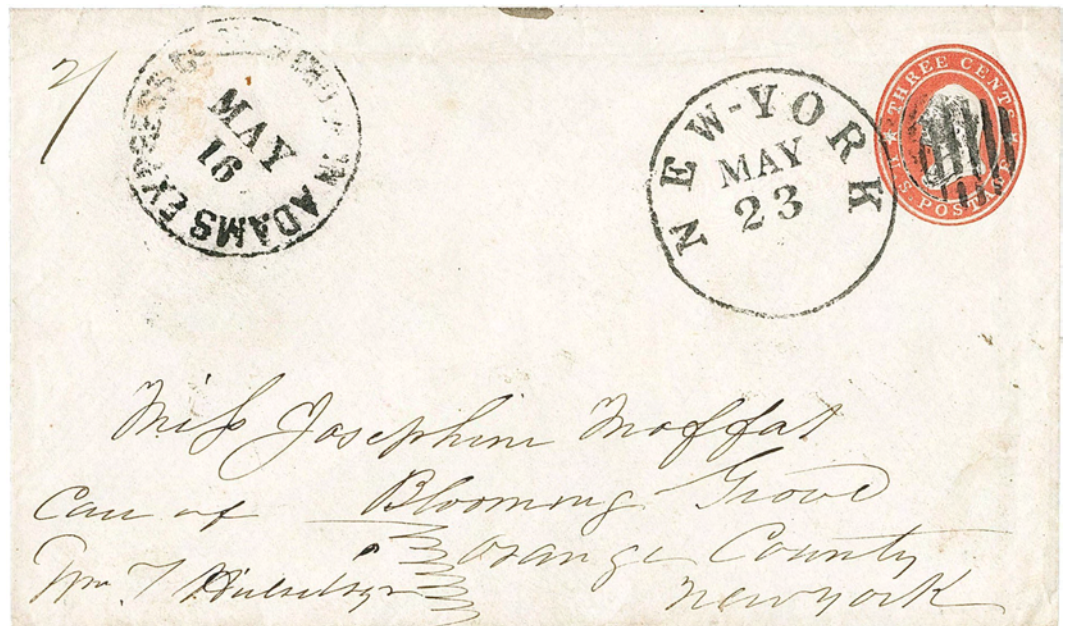 2/
ADAMS EXPRESS
MAY
16
NEW-YORK
MAY
23
THREE CENTS
U.S. POSTAGE
Miss Josephine Moffat
Care of Blooming Grove
Orange County
Wm. T
New York